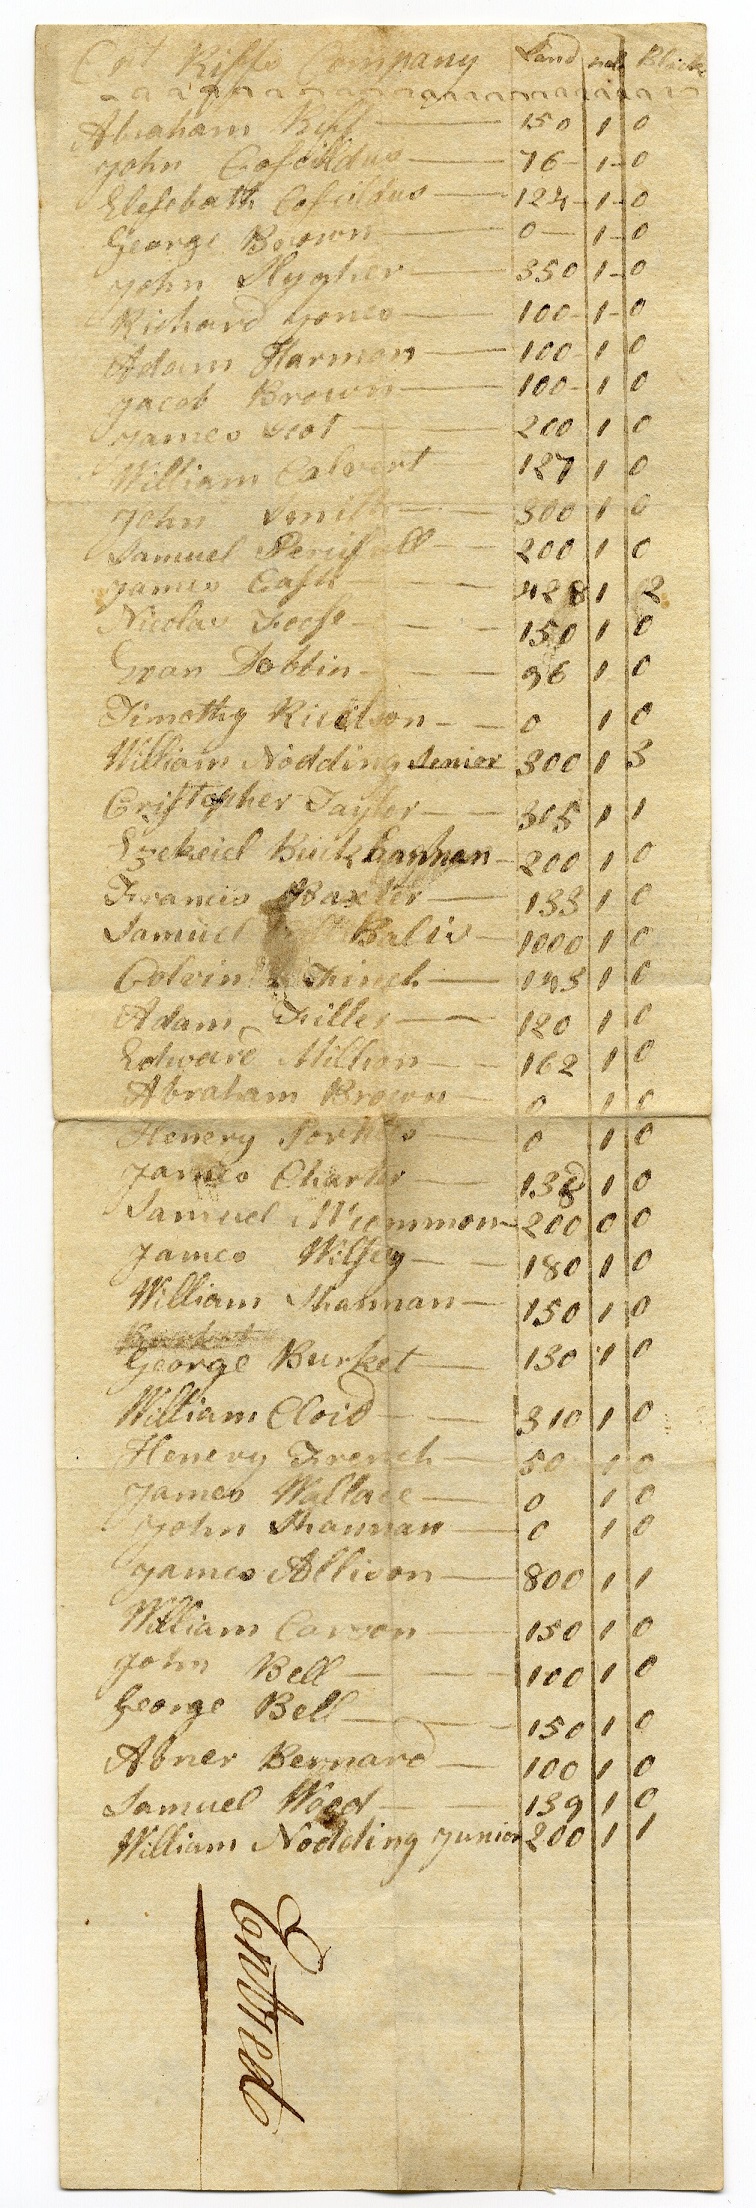 Cpt Riffs Company Land Black
Abraham Riff 150 1 0
John 76 1 0
Elesebath 124 1 0
George Brown 0 1 0
John Slygher 350 1 0
Richard Jones 100 1 0
Adam Harmon 100 1 0
Jacob Brown 100 1 0
James Scot 200 1 0
William Calvert 127 1 0
John Smith 300 1 0
Samuel 200 1 0
James Cash 428 1 2
Nicolas 150 1 0
Evan Dobbin 96 1 0
Timothy 0 1 0
William Nodding Senior 300 1 3
Cristopher Taylor 315 1 1
Ezekeiel Buckhannan 200 1 0
Francis Baxter 133 1 0
Samuel 1000 1 0
Colvin Finch 1 0
Adam Filler 120 1 0
Edward Million 162 1 0
Abraham Brown 0 1 0
Henery 0 1 0
James Charter 138 1 0
Samuel 200 0 0
James Wilsey 180 1 0
William Shannan 150 1 0
Burket
George Burket 130 1 0
William Cloid 310 1 0
Henery French 50 1 0
James Wallace 0 1 0
John Shannan 0 1 0
James Allison 800 1 1
William Carson 150 1 0
John Bell 100 1 0
George Bell 150 1 0
Abner Bernard 100 1 0
Samuel Wood 139 1 0
William Nodding Junior 200 1 1
Entred